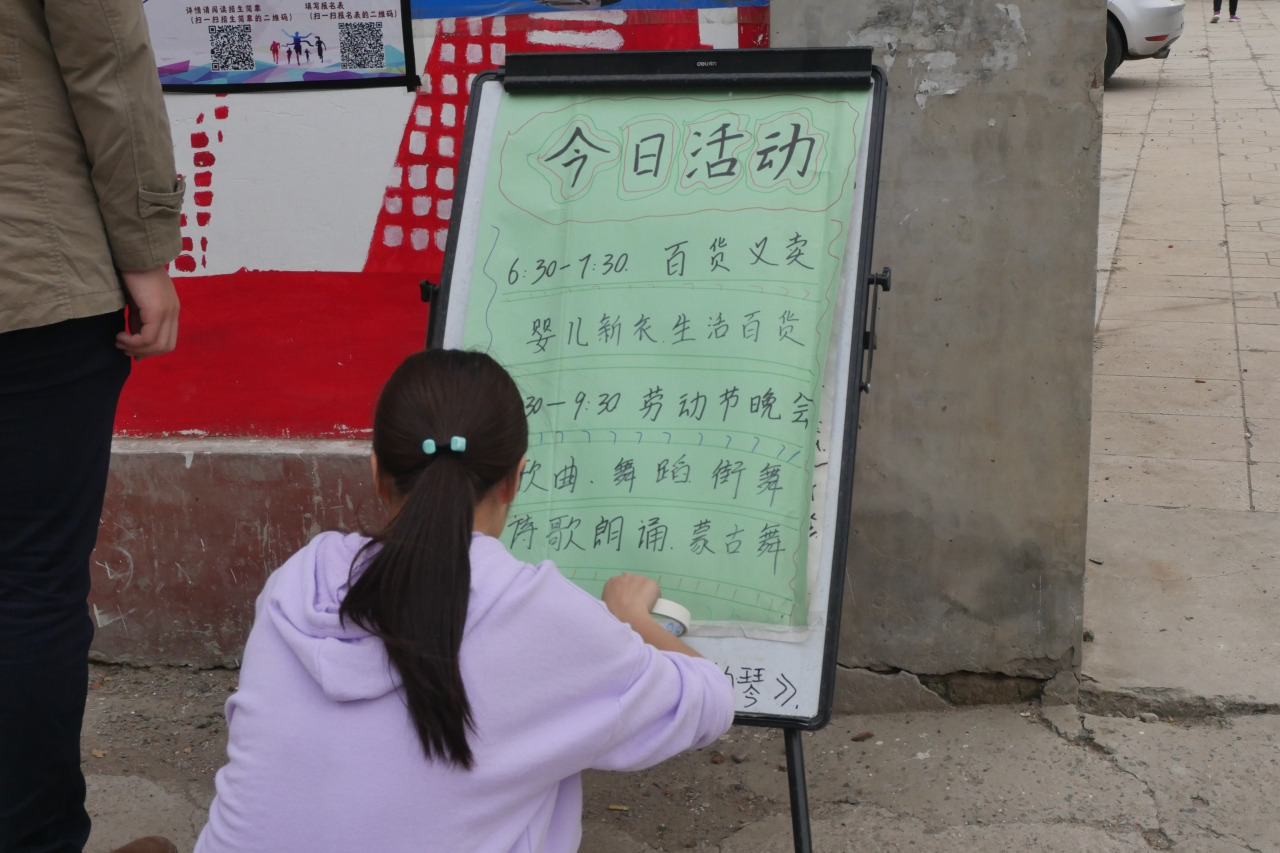 详情请阅读招生简章
(扫一扫招生简章的二维码)
填写报名表
(扫一扫报名表的二维码)
deli
今日活动
6:30-7:30. 百货义卖
婴儿新衣.生活百货
30-9:30 劳动节晚会
歌曲.舞蹈 街舞
诗歌朗诵.蒙古舞
琴》